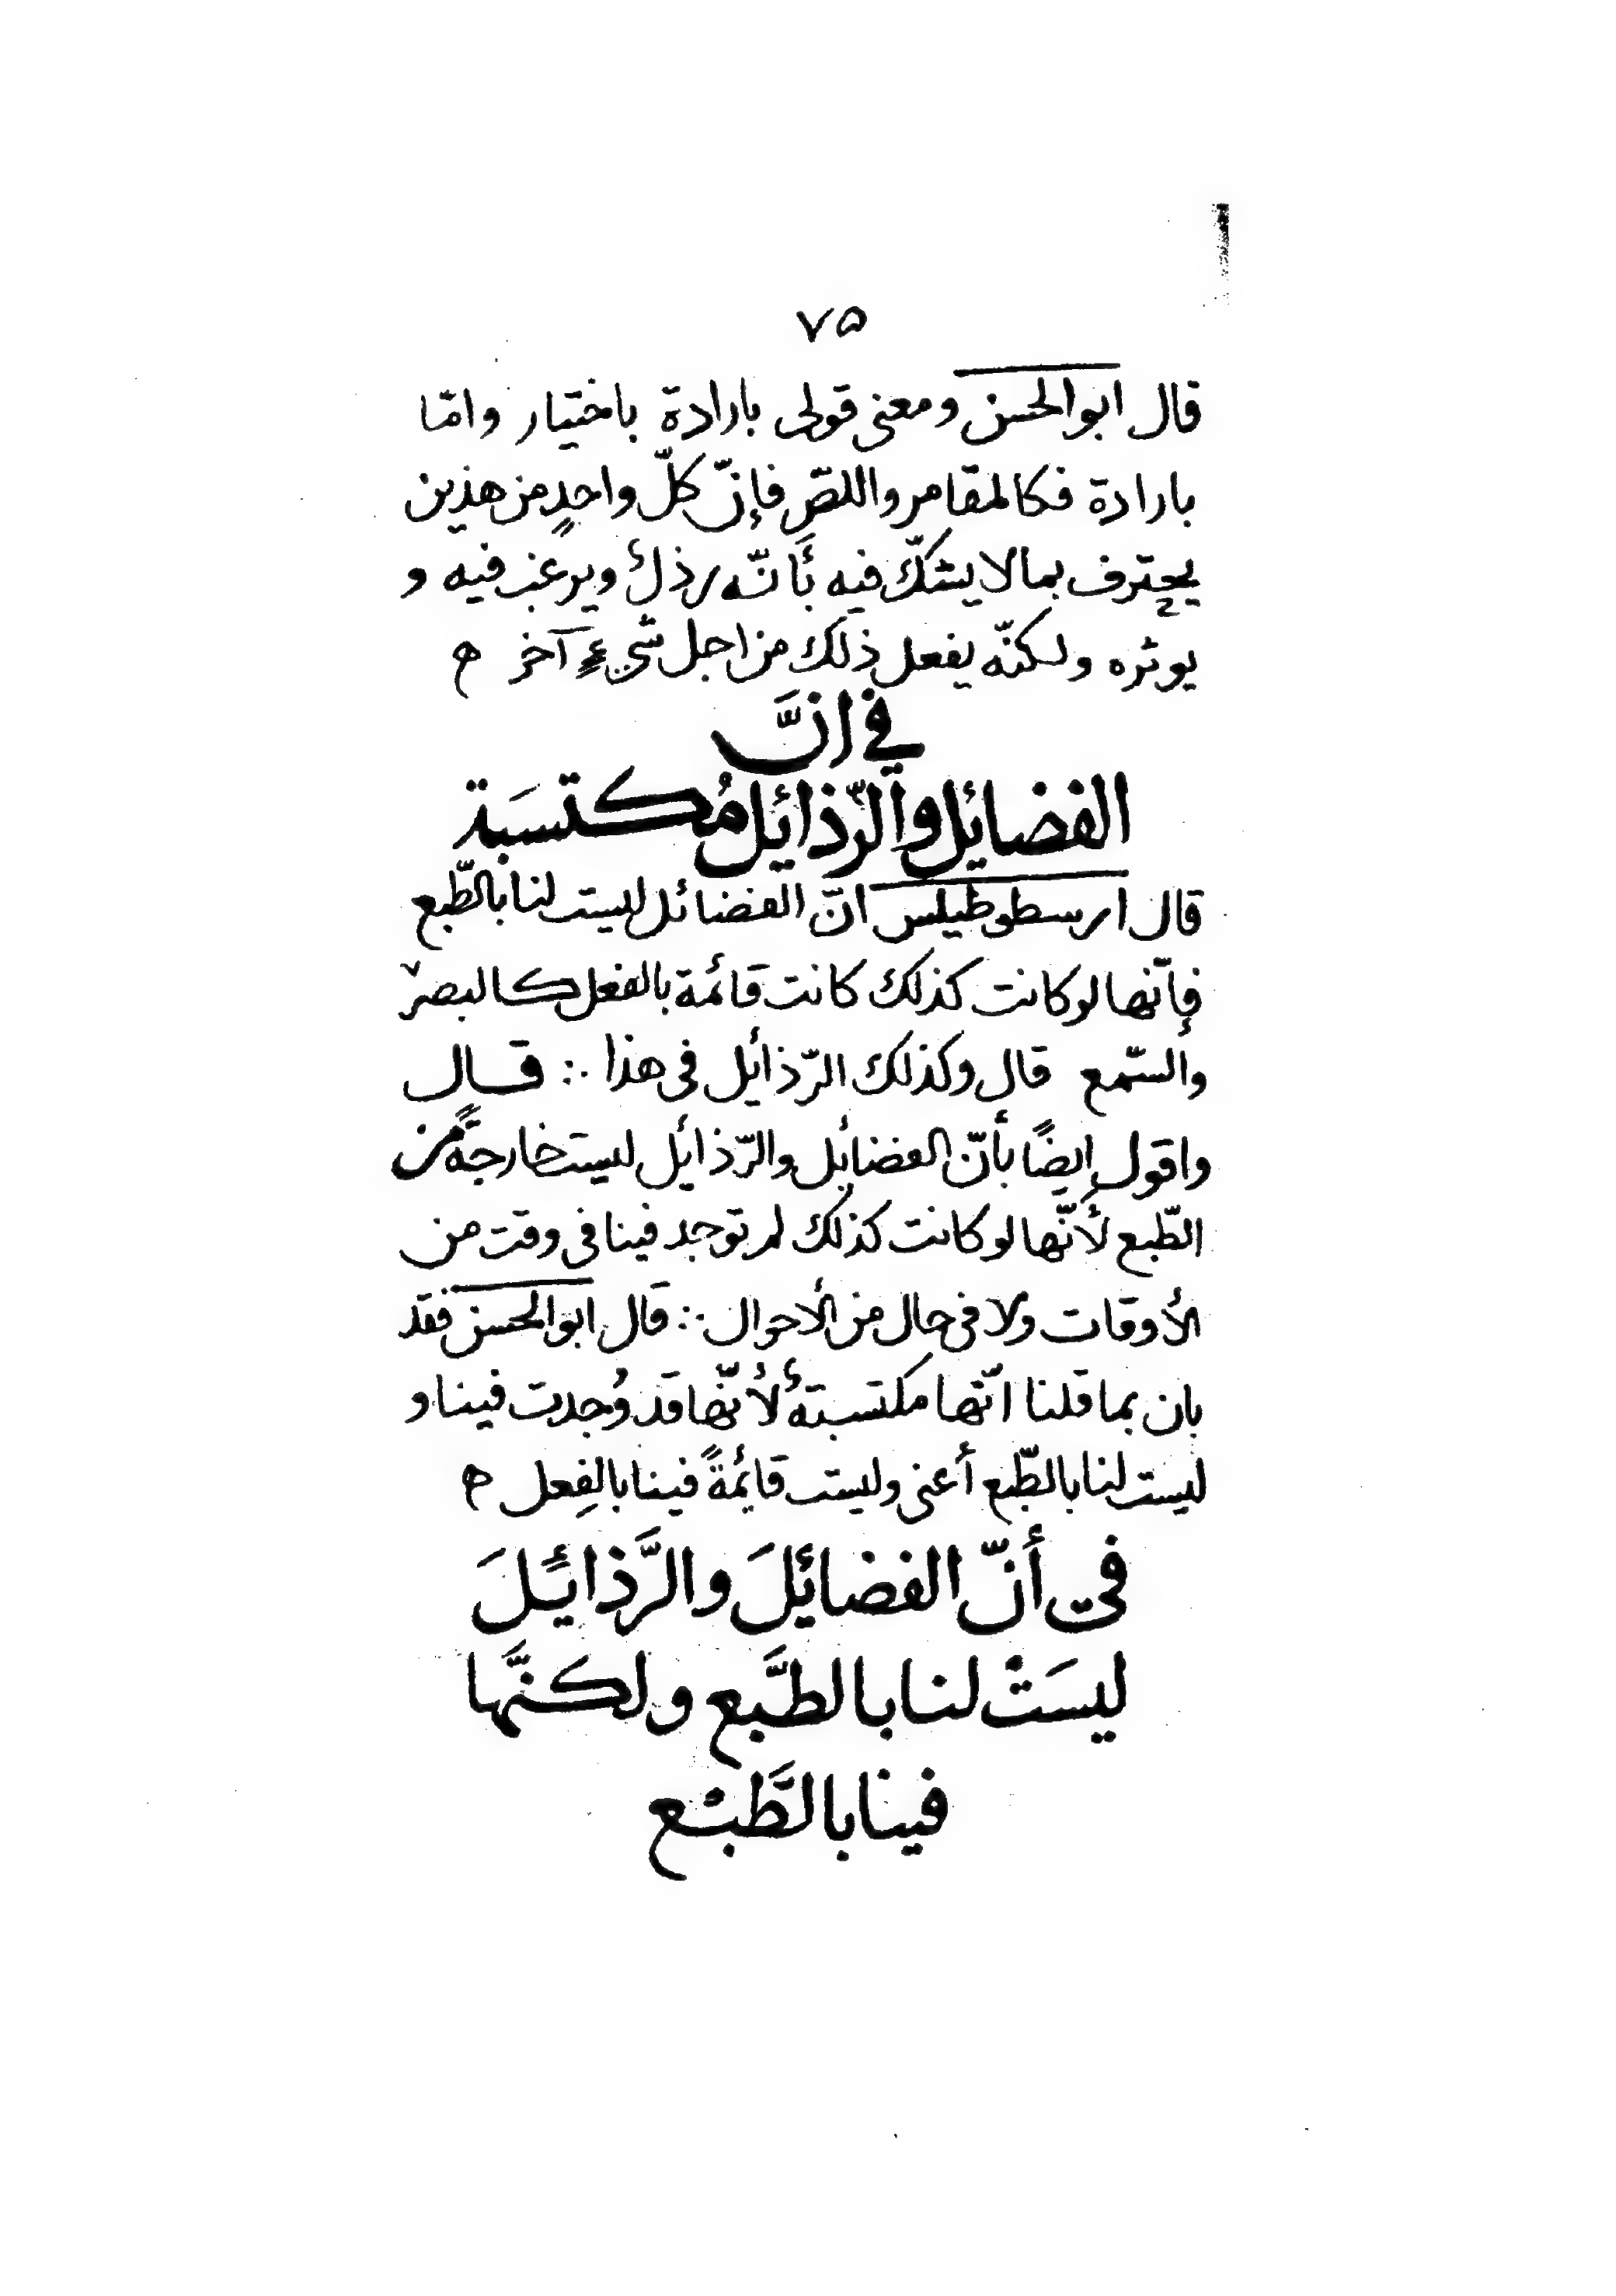 ٧۵
قال ابوالحسن ومعنى قولى بارادة باختيار وامّا
بارادة فكالمقامر واللصّ فإنّ كلّ واحدٍ من هذين
يحترف بما لا يشكّ فيه بأنّه رذلٌ ويرغب فيه و
يوثره ولكنّه يفعل ذلك من اجل شىءٍ آخر ه
في انَّ
الفضايل والرّذائل مُكتسَبة
قال ارسطوطيلس انّ الفضائل ليست لنا بالطّبع
فإنّها لو كانت كذلك كانت قائمة بالفعل كالبصر
والسّمع قال وكذلك الرّذايل فى هذا ∴ قــال
واقول ايضًا بأنّ الفضايل والرّذايل ليست خارجةً من
الطّبع لأنّها لو كانت كذلك لم توجد فينا فى وقت من
الأوقات ولا فى حال من الأحوال ∴ قال ابوالحسن فقد
بان بما قلنا انّها مكتسبة لأنّها قد وُجدت فينا و
ليست لنا بالطّبع أعنى وليست قايمةً فينا بالفِعل ه
فى أنّ الفضائلَ والرَّذائلَ
ليسَتْ لنا بالطَّبع ولكنَّها
فينا بالطَّبْع